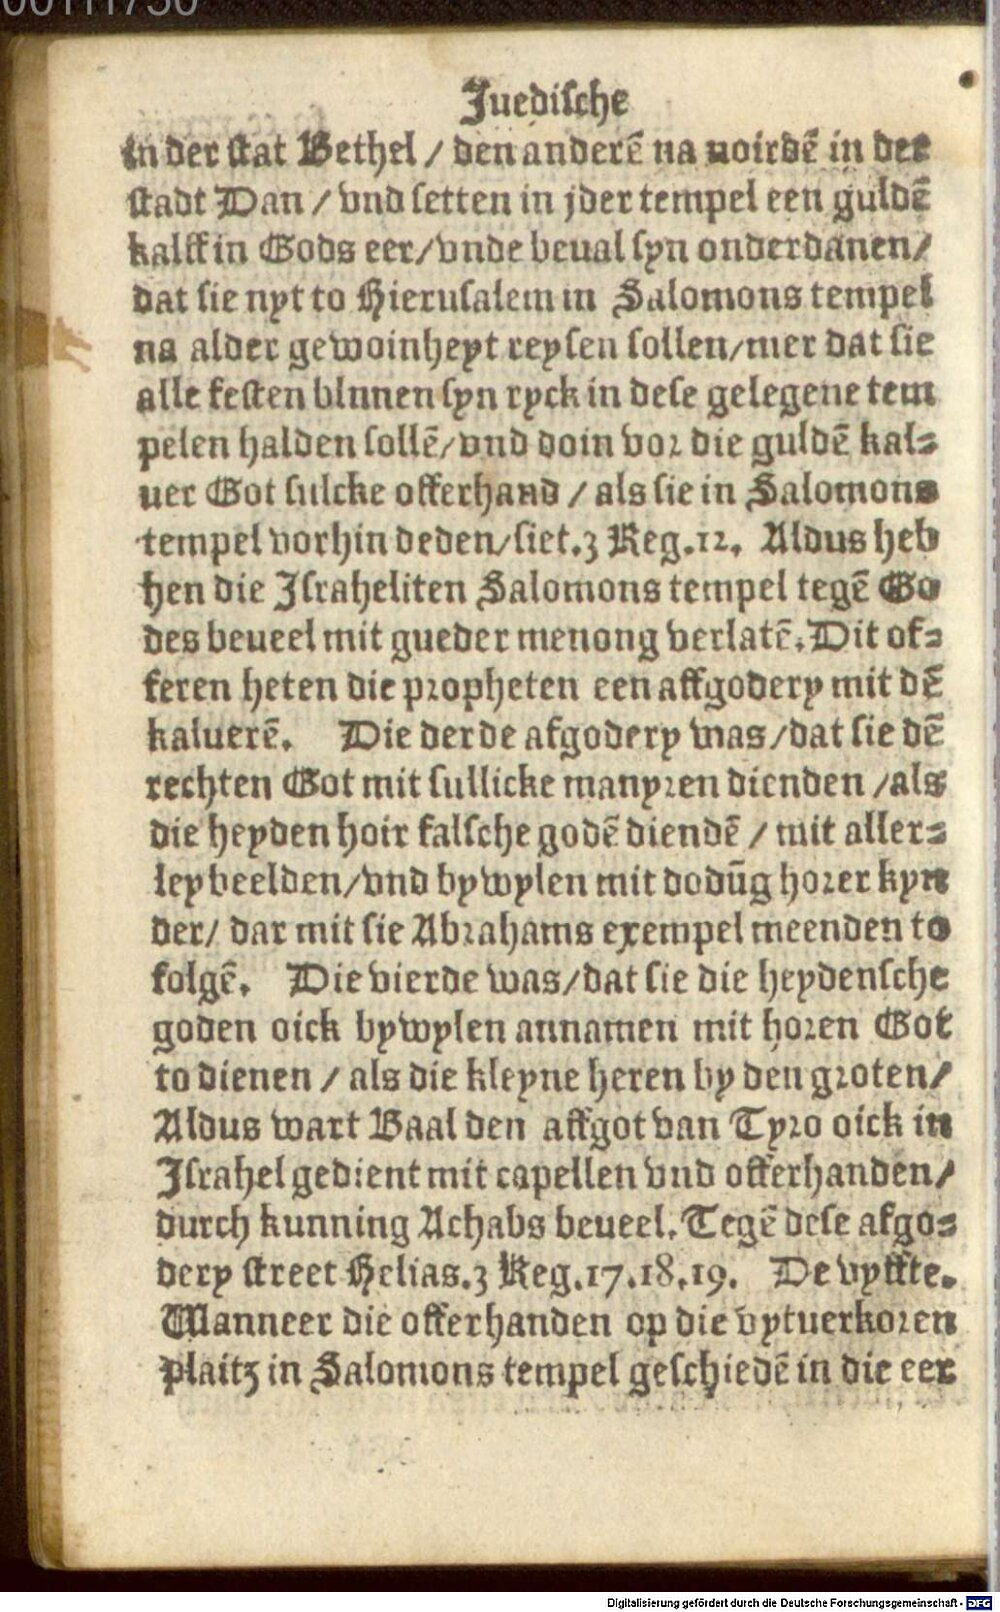 Juedische
in der stat Bethel / den anderē na noirdē in der
stadt Dan / vnd setten in jder tempel een guldē
kalff in Gods eer / vnde beual syn onderdanen /
dat sie nyt to Hierusalem in Salomons tempel
na alder gewoinheyt reysen sollen / mer dat sie
alle festen blnnen syn ryck in dese gelegene tem
pelen halden sollē / vnd doin vor die guldē kal⸗
uer Got sulcke offerhand / als sie in Salomons
tempel vorhin deden / siet. 3 Reg. 12. Aldus heb
hen die Israheliten Salomons tempel tegē Go
des beueel mit gueder menong verlatē. Dit of⸗
feren heten die propheten een affgodery mit dē
kaluerē. Die derde afgodery was / dat sie dē
rechten Got mit sullicke manyren dienden / als
die heyden hoir falsche godē diendē / mit aller⸗
ley beelden / vnd bywylen mit dodūg horer kyn
der / dar mit sie Abrahams exempel meenden to
folgē. Die vierde was / dat sie die heydensche
goden oick bywylen annamen mit horen Got
to dienen / als die kleyne heren by den groten /
Aldus wart Baal den affgot van Tyro oick in
Israhel gedient mit capellen vnd offerhanden /
durch kunning Achabs beueel. Tegē dese afgo⸗
dery street Helias. 3 Reg. 17. 18. 19. De vyffte.
Wanneer die offerhanden op die vytuerkoren
plaitz in Salomons tempel geschiedē in die eer
Digitalisierung gefördert durch die Deutsche Forschungsgemeinschaft - DFG